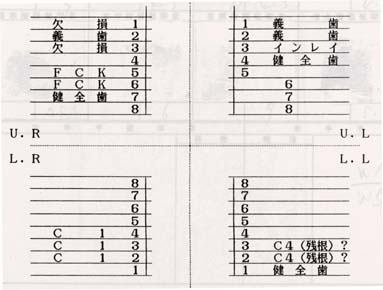 欠損 1
義歯 2
欠損 3
4
FCK 5
FCK 6
健全歯 7
8
1 義歯
2 義歯
3 インレイ
4 健全歯
5
6
7
8
U.R
U.L
L.R
L.L
8
7
6
5
C1 4
C1 3
C1 2
1
8
7
6
5
4
3 C4(残根)?
2 C4(残根)?
1 健全歯